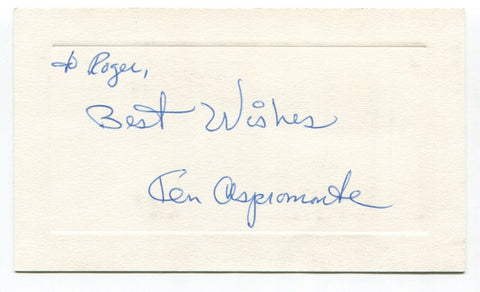 To Roger,
Best Wishes
Ken Aspromonte